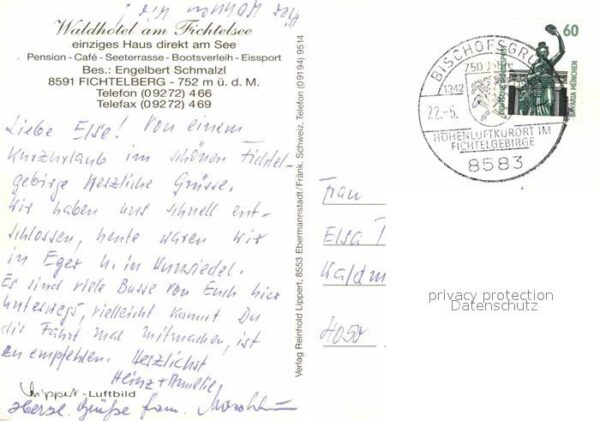 Waldhotel am Fichtelsee
einziges Haus direkt am See
Pension - Café - Seeterrasse - Bootsverleih - Eissport
Bes.: Engelbert Schmalzl
8591 FICHTELBERG - 752 m ü. d. M.
Telefon (09272) 466
Telefax (09272) 469
Liebe Else! Von einem
Kurzurlaub im schönen Fichtel-
gebirge herzliche Grüsse.
Wir haben uns schnell ent-
schlossen, heute waren wir
in Eger u. in Wunsiedel.
Es sind viele Busse von Euch hier
unterwegs, vielleicht kannst Du
die Fahrt mal mitmachen, ist
zu empfehlen. Herzlichst
Heinz + Amelie
Lippert - Luftbild
Grüße fam.
Verlag Reinhold Lippert, 8553 Ebermannstadt/Fränk. Schweiz, Telefon (09194) 9514
BISCHOFSGRÜN
750 Jahre
1342
22.-5.
HÖHENLUFTKURORT IM
FICHTELGEBIRGE
8583
60
BAVARIA MÜNCHEN
Frau
Elsa
Waldm
4050
privacy protection
Datenschutz